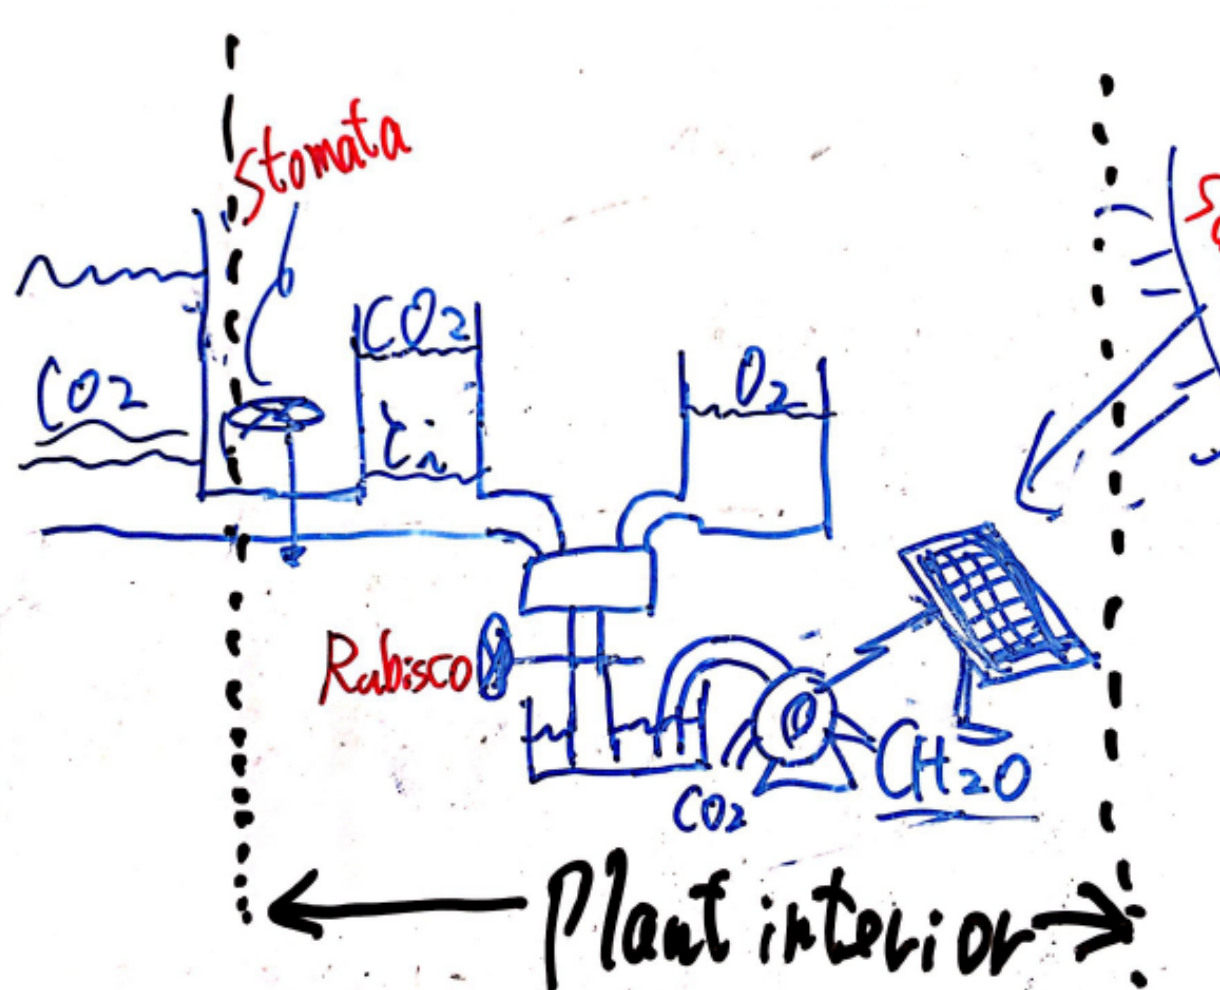 Stomata
CO2
CO2
O2
Rubisco
CH2O
CO2
Plant interior